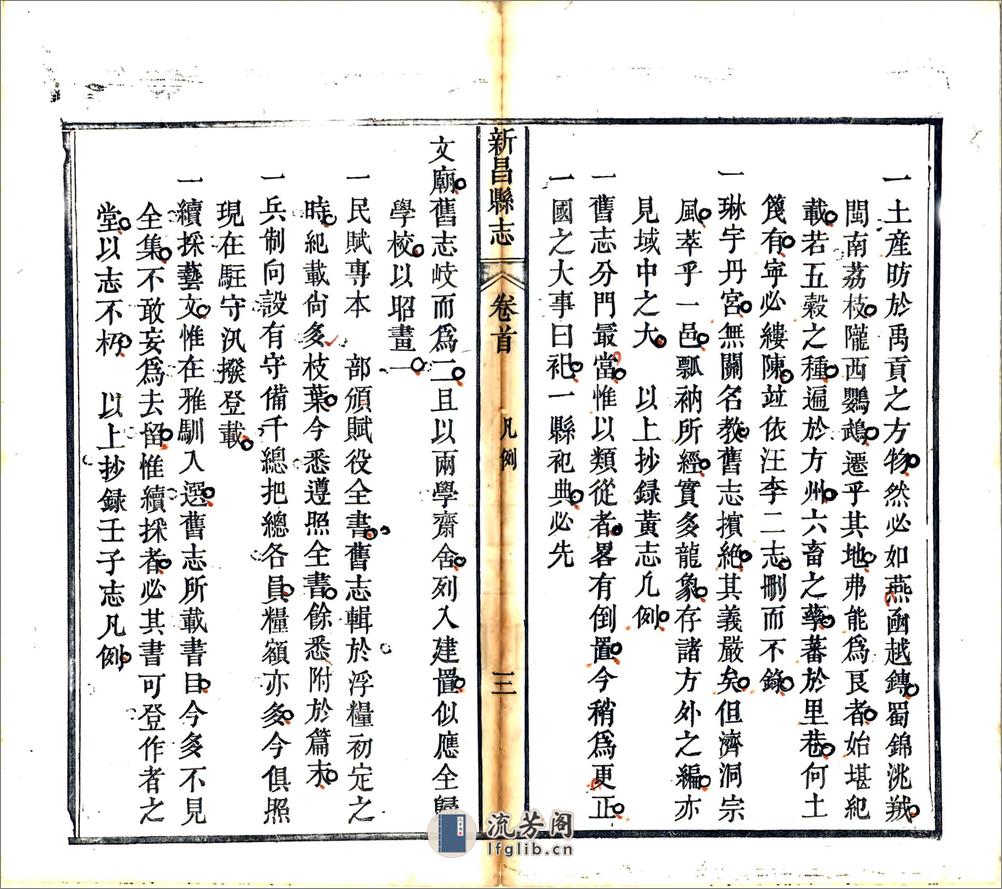 一土産昉於禹貢之方物然必如燕函越鏄蜀錦洮羢
閩南荔枝隴西鸚鵡遷乎其地弗能爲良者始堪紀
載若五穀之種遍於方州六畜之孳蕃於里巷何土
篾有寜必縷陳竝依汪李二志刪而不錄
一琳宇丹宮無關名教舊志擯絶其義嚴矣但濟洞宗
風萃乎一邑瓢衲所經實多龍象存諸方外之編亦
見域中之大　以上抄録黃志凡例
一舊志分門最當惟以類從者畧有倒置今稍爲更正
一國之大事曰祀一縣祀典必先
新昌縣志
卷首
凡例
三
文廟舊志岐而爲二且以兩學齋舍列入建置似應全歸
學校以昭畫一
一民賦專本　部頒賦役全書舊志輯於浮糧初定之
時紀載尙多枝葉今悉遵照全書餘悉附於篇末
一兵制向設有守備千總把總各員糧額亦多今俱照
現在駐守汛撥登載
一續採藝文惟在雅馴入選舊志所載書目今多不見
全集不敢妄爲去留惟續採者必其書可登作者之
堂以志不朽　以上抄録壬子志凡例
流芳阁
lfglib.cn